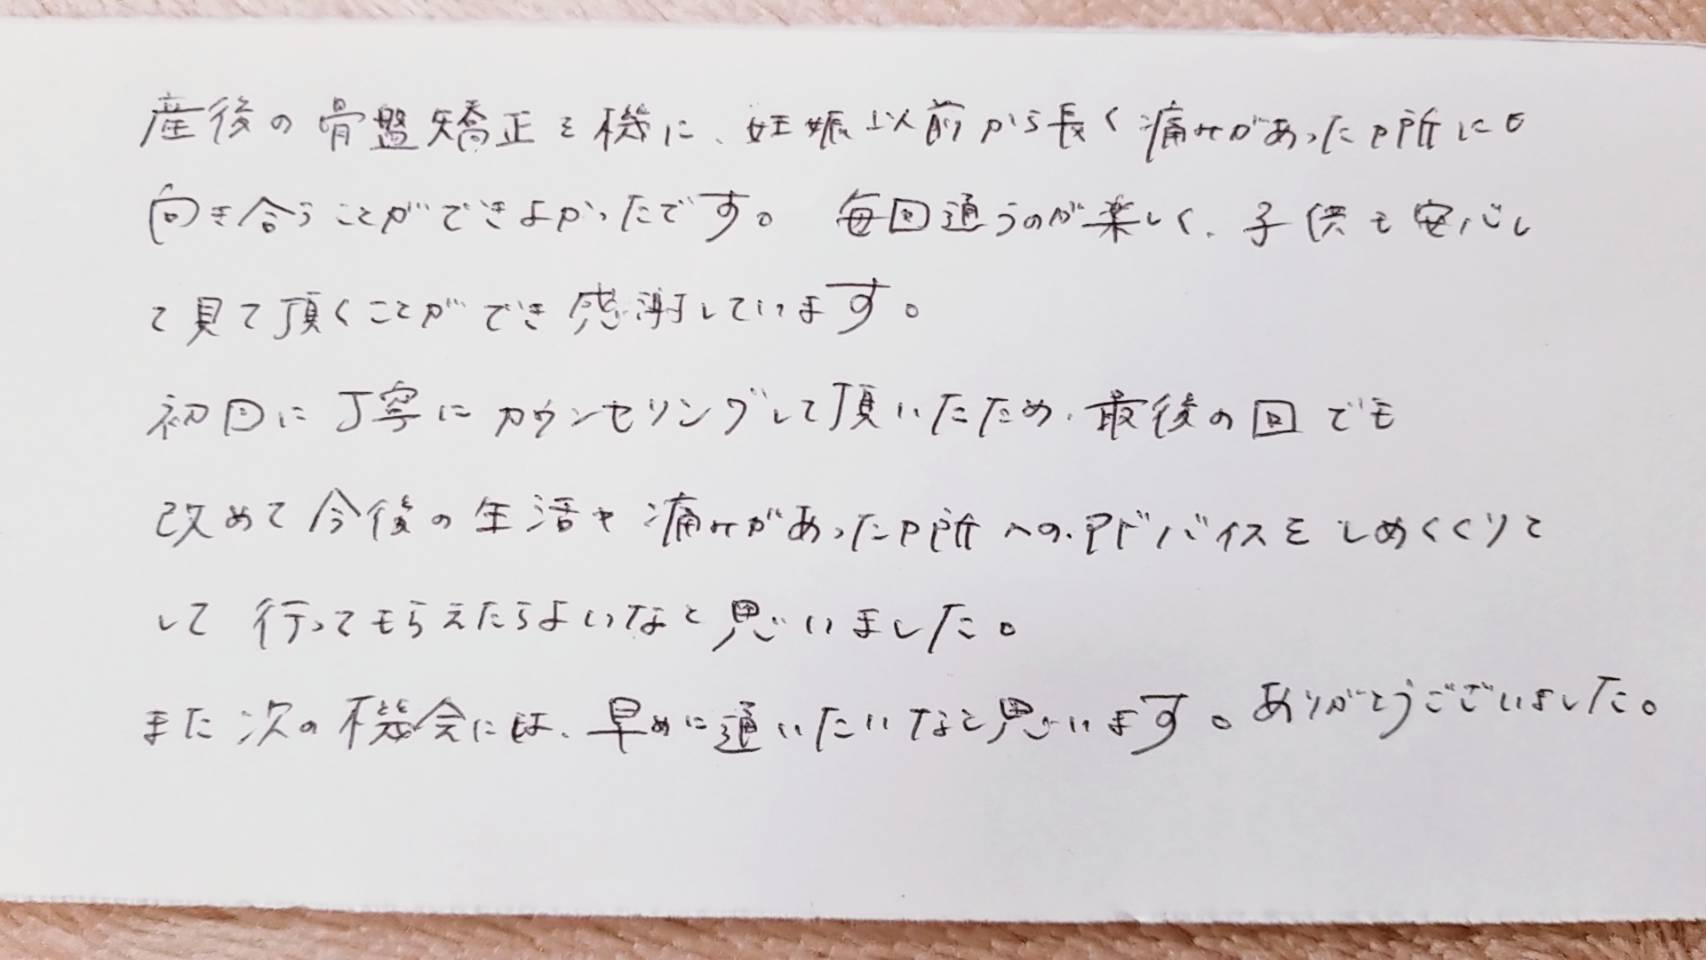 産後の骨盤矯正を機に、妊娠以前から長く痛みがあった所にも
向き合うことができよかったです。 毎回通うのが楽しく、子供も安心し
て見て頂くことができ感謝しています。
初回に丁寧にカウンセリングして頂いたため、最後の回でも
改めて今後の生活や痛みがあった所へのアドバイスをしめくくりと
して行ってもらえたらよいなと思いました。
また次の機会には、早めに通いたいなと思います。ありがとうございました。